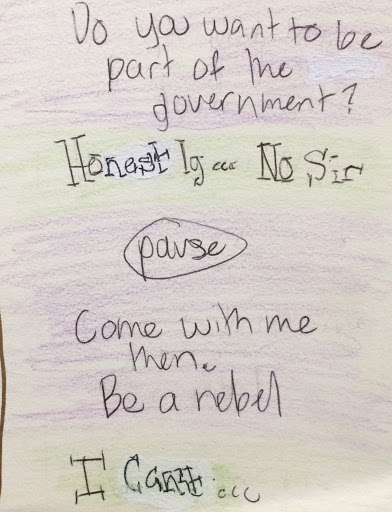 Do you want to be
part of the
government?
Honest lg... No Sir
pause
Come with me
then.
Be a rebel
I Can't...